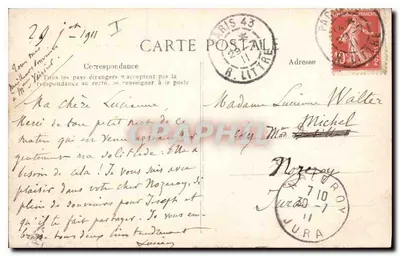 29 jet 1911
I
CARTE POSTALE
Correspondance
Tous les pays étrangers n'acceptent pas la
correspondance au recto, se renseigner à la poste
Adresse
PARIS 43
R. LITTRÉ
29
11
PARIS
10
Ma chère Lucienne
Merci de ton petit mot de ce
matin qui est venu
ma solitude. Elle a
besoin de cela ! Je vous suis avec
plaisir dans votre cher Nozeroy, si
plein de souvenirs pour Joseph et
qu'il te fait partager. Je vous em-
brasse tous deux bien tendrement
Madame Lucienne Walter
chez Mme Michel
Nozeroy
Jura
NOZEROY
7 10
30 -7
11
JURA